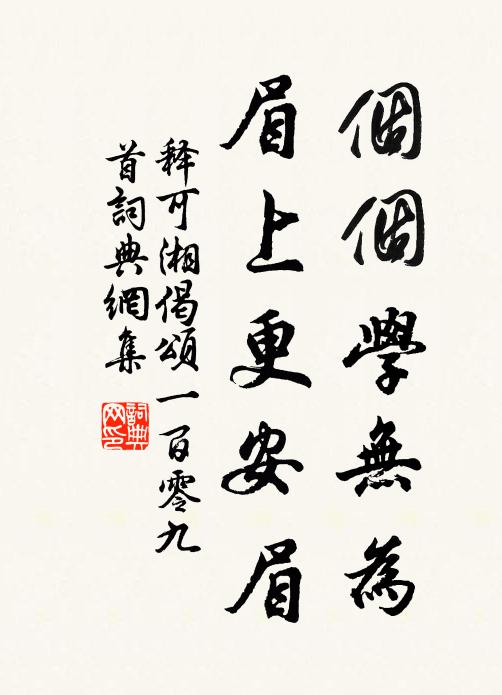 個個學無為
眉上更安眉
释可湘偈頌一百零九
首詞典網集
詞典网印